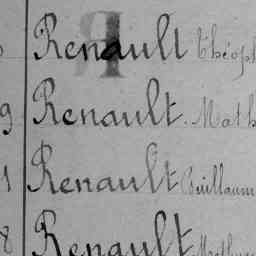 Renault Théoph
9 Renault. Math
1 Renault Guillaum
8 Renault Mathu